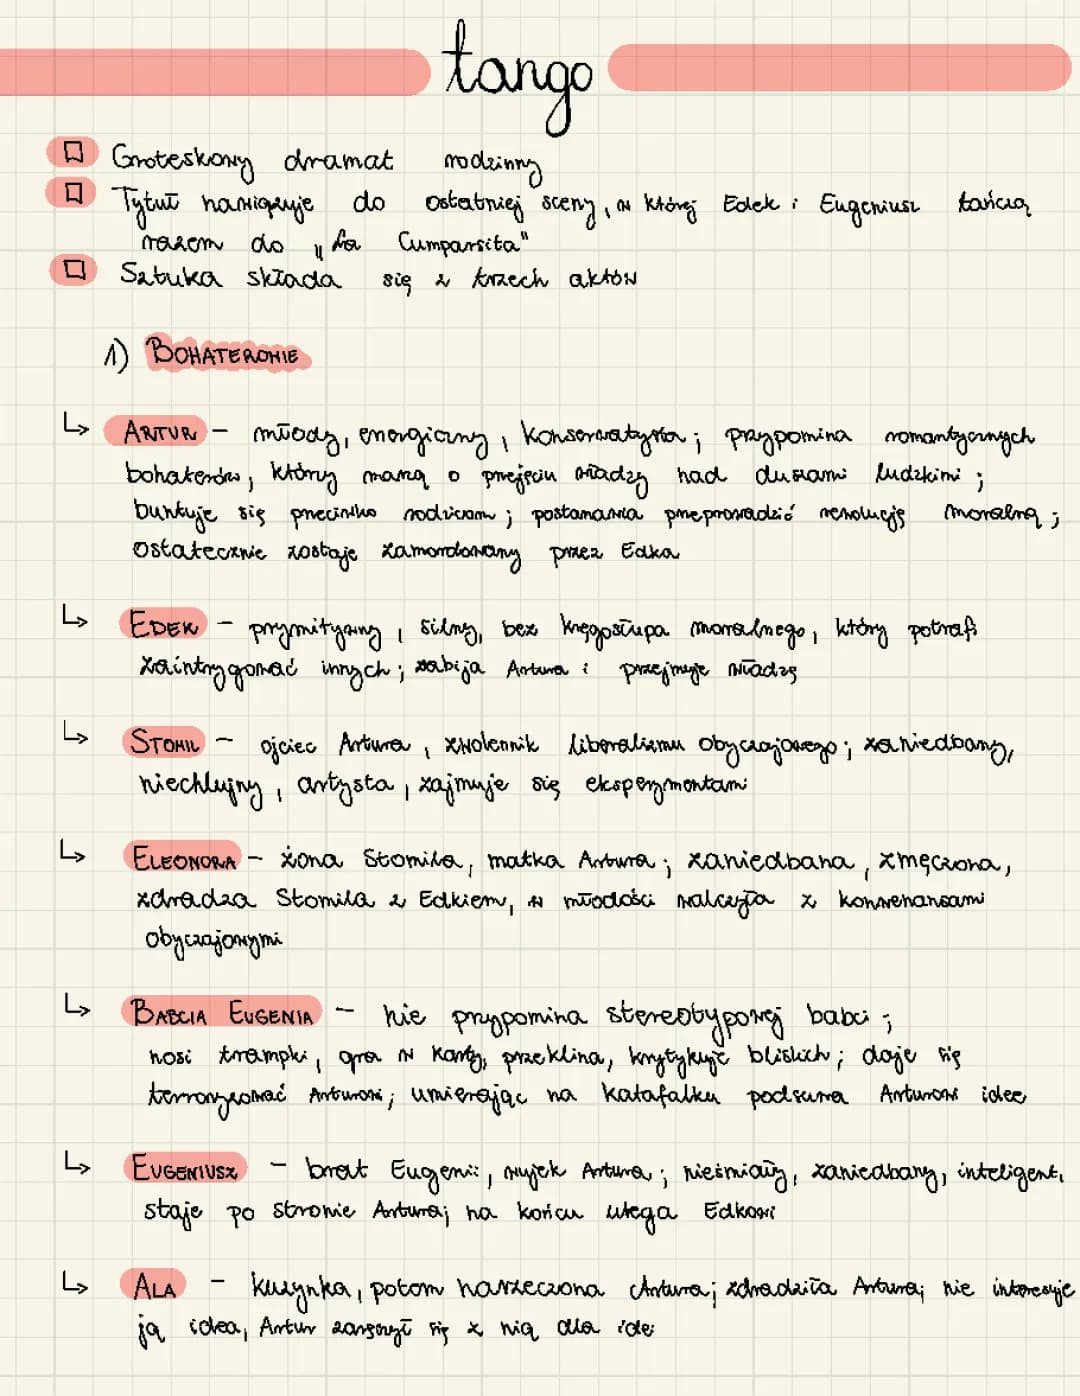 tango
Groteskowy dramat rodzinny
Tytuł nawiązuje do ostatniej sceny, w której Edek i Eugeniusz tańczą
razem do „La Cumparsita"
Sztuka składa się z trzech aktów
1) BOHATEROWIE
↳ ARTUR – młody, energiczny, konserwatysta; przypomina romantycznych
bohaterów, którzy marzą o przejęciu władzy nad duszami ludzkimi;
buntuje się przeciwko rodzicom; postanawia przeprowadzić rewolucję moralną;
ostatecznie zostaje zamordowany przez Edka
↳ EDEK – prymitywny, silny, bez kręgosłupa moralnego, który potrafi
zaintrygować innych; zabija Artura i przejmuje władzę
↳ STOMIL – ojciec Artura, zwolennik liberalizmu obyczajowego; zaniedbany,
niechlujny, artysta, zajmuje się eksperymentami
↳ ELEONORA – żona Stomila, matka Artura; zaniedbana, zmęczona,
zdradza Stomila z Edkiem, w młodości walczyła z konwenansami
obyczajowymi
↳ BABCIA EUGENIA – nie przypomina stereotypowej babci;
nosi trampki, gra w karty, przeklina, krytykuje bliskich; daje się
terroryzować Arturowi; umierając na katafalku podsuwa Arturowi ideę
↳ EUGENIUSZ – brat Eugenii, wujek Artura; nieśmiały, zaniedbany, inteligent,
staje po stronie Artura; na końcu ulega Edkowi
↳ ALA – kuzynka, potem narzeczona Artura; zdradziła Artura; nie interesuje
ją idea, Artur zaręczył się z nią dla idei